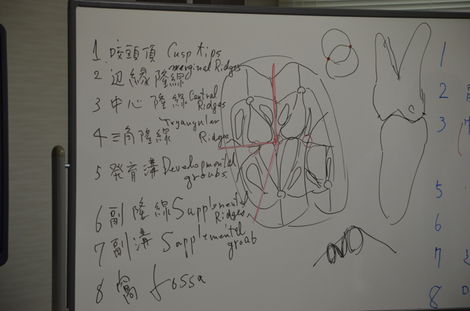 1 咬頭頂 Cusp tips
2 辺縁隆線 marginal Ridges
3 中心隆線 Central Ridges
4 三角隆線 Tryangular Ridges
5 発育溝 Developmental groubs
6 副隆線 Supplemental Ridges
7 副溝 Supplemental groub
8 窩 fossa
1
2
3
5
6
7
8